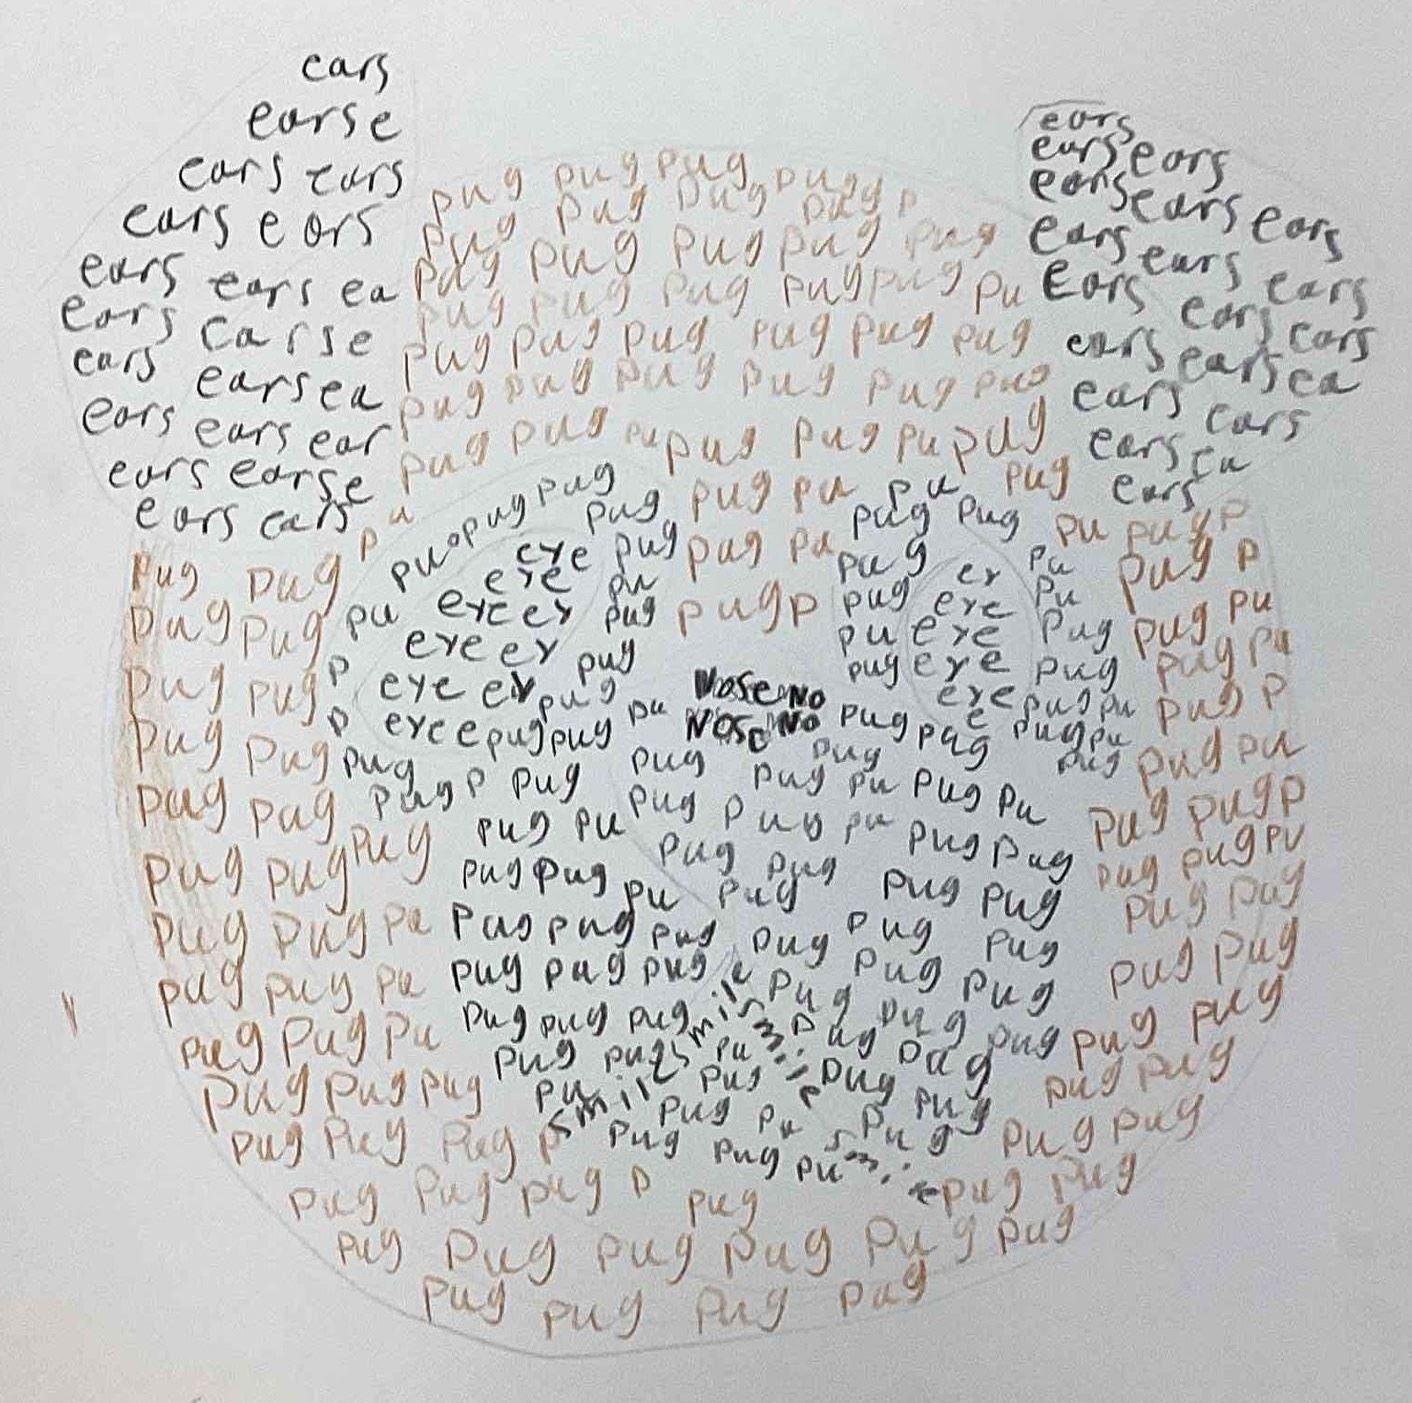 ears
earse
ears ears
ears ears
ears ears ea
ears earse
ears earsea
ears ears ear
ears earse
ears ears
ears
ears ears
ears ears ears
ears ears ears
Ears ears ears
ears ears ea
ears ears
ears ea
ears
pug pug pug pug p
pug pug pug pug
pug pug pug pug pug
pug pug pug pug pug pu
pug pug pug pug pug pug
pug pug pug pug pug pug
pug pug pu pug pug pu pug
pu pug pug pug pu pu pug
pu pug pug pug pu pug pug pu pug p
pug pug eye pug pug pu pug ey pu pug p
pug pug pu eye ey pug pug p pug eye pu pug pu
pug pug p eye ey pug pu eye pug pug pu
pug pug p eye ey pug pu Nose No pug eye pug pug p
pug pug pug eye e pug pug Nose No pug pug pug pu pug pu
pug pug pug p pug pug pug pu pug pu pug pug p
pug pug pug pug pu pug pug pu pug pug pug pug pu
pug pug pu pug pug pu pug pug pug pug pug pug
pug pug pu pug pug pug smile pug pug pug pug pug
pug pug pu pug pug pug smile pug pug pug pug pug
pug pug pug pu smile pug pug pug pug pug
pug pug pug p pug pug pu smile pug pug
pug pug pug p pug pug pug
pug pug pug pug pug pug
pug pug pug pug